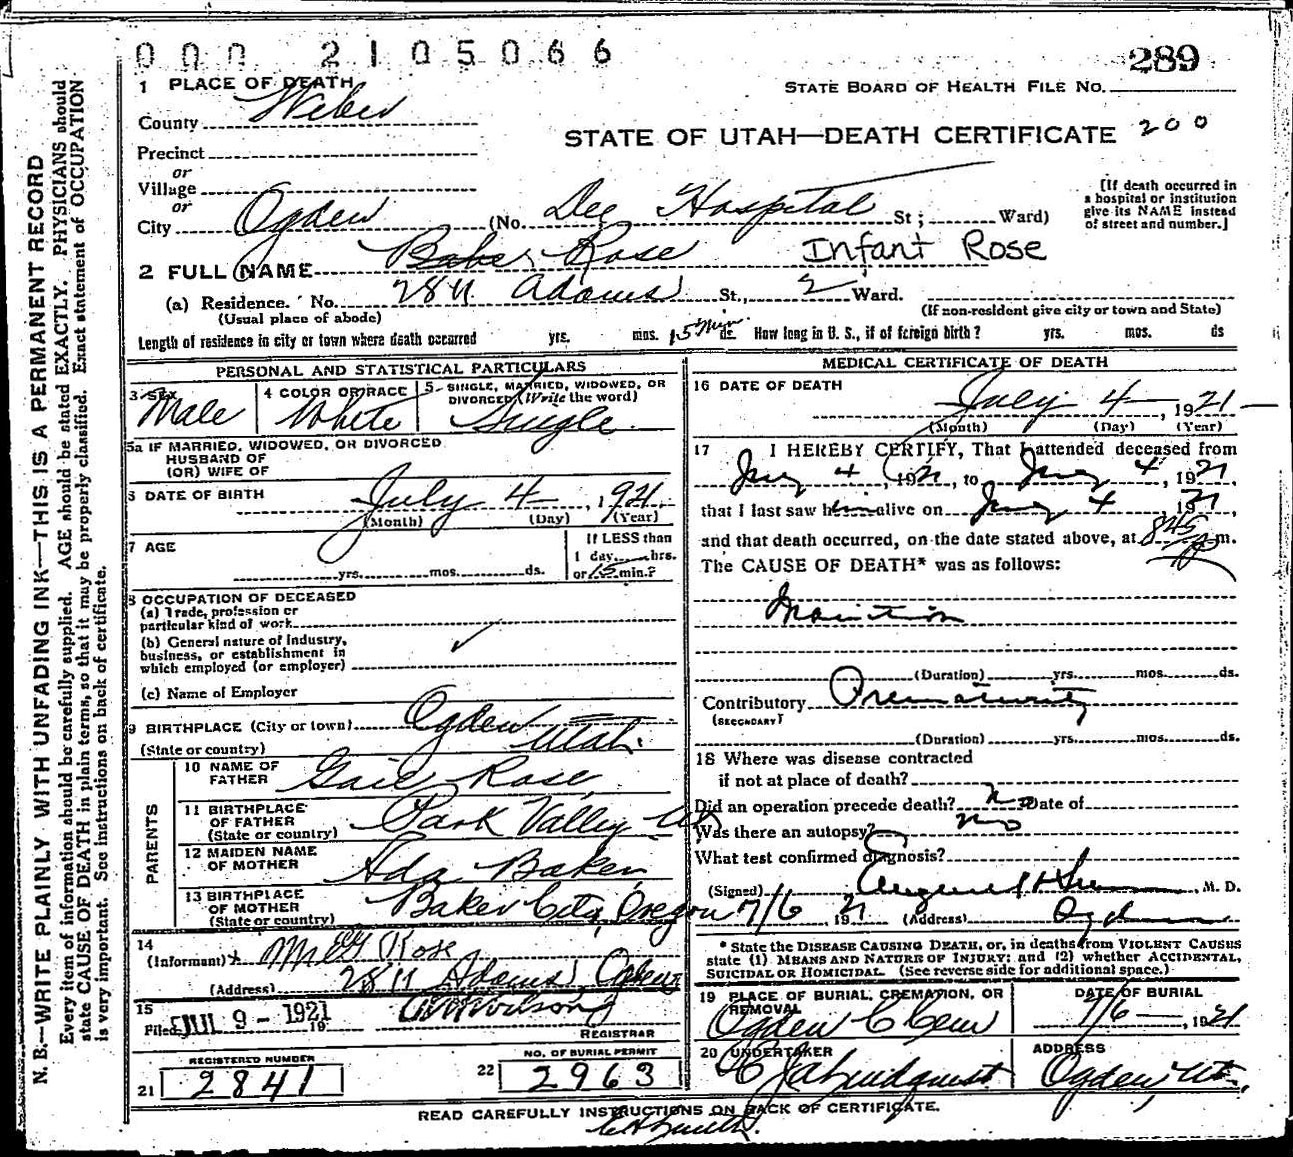 000 2105066
289
1 PLACE OF DEATH
STATE BOARD OF HEALTH FILE No.
County Weber
STATE OF UTAH—DEATH CERTIFICATE 200
Precinct
or
Village
or
City Ogden (No. Dee Hospital St; Ward)
[If death occurred in a hospital or institution give its NAME instead of street and number.]
2 FULL NAME Rose Infant Rose
(a) Residence. No. 2811 Adams St., 2 Ward.
(Usual place of abode)
(If non-resident give city or town and State)
Length of residence in city or town where death occurred yrs. mos. 15 Min. ds. How long in U. S., if of foreign birth? yrs. mos. ds
PERSONAL AND STATISTICAL PARTICULARS
3 SEX Male
4 COLOR OR RACE White
5 SINGLE, MARRIED, WIDOWED, OR DIVORCED (Write the word) Single
5a IF MARRIED, WIDOWED, OR DIVORCED
HUSBAND OF
(OR) WIFE OF
6 DATE OF BIRTH July 4, 1921
(Month) (Day) (Year)
7 AGE yrs. mos. ds.
If LESS than
1 day, hrs.
or 15 min.?
8 OCCUPATION OF DECEASED
(a) Trade, profession or
particular kind of work
(b) General nature of Industry,
business, or establishment in
which employed (or employer)
(c) Name of Employer
9 BIRTHPLACE (City or town) Ogden
(State or country) Utah.
PARENTS
10 NAME OF FATHER Gail Rose
11 BIRTHPLACE OF FATHER (State or country) Park Valley Ut
12 MAIDEN NAME OF MOTHER Ada Baker
13 BIRTHPLACE OF MOTHER (State or country) Baker City, Oregon
14
(Informant) Rose
(Address) 2811 Adams, Ogden
15
Filed JUL 9 - 1921 19
REGISTRAR
REGISTERED NUMBER
21 2841
NO. OF BURIAL PERMIT
22 2963
MEDICAL CERTIFICATE OF DEATH
16 DATE OF DEATH
July 4, 1921
(Month) (Day) (Year)
17 I HEREBY CERTIFY, That I attended deceased from
July 4, 1921, to July 4, 1921,
that I last saw him alive on July 4, 1921,
and that death occurred, on the date stated above, at 845 p m.
The CAUSE OF DEATH* was as follows:
Inanition
(Duration) yrs. mos. ds.
Contributory Prematurity
(SECONDARY)
(Duration) yrs. mos. ds.
18 Where was disease contracted
if not at place of death?
Did an operation precede death? no Date of
Was there an autopsy? no
What test confirmed diagnosis?
(Signed) M. D.
7/6, 1921 (Address) Ogden
* State the DISEASE CAUSING DEATH, or, in deaths from VIOLENT CAUSES
state (1) MEANS AND NATURE OF INJURY; and (2) whether ACCIDENTAL,
SUICIDAL OR HOMICIDAL. (See reverse side for additional space.)
19 PLACE OF BURIAL, CREMATION, OR REMOVAL
Ogden C Cem
DATE OF BURIAL
7/6, 1921
20 UNDERTAKER
Lindquist
ADDRESS
Ogden, Ut.
READ CAREFULLY INSTRUCTIONS ON BACK OF CERTIFICATE.
N. B.—WRITE PLAINLY WITH UNFADING INK—THIS IS A PERMANENT RECORD
Every item of information should be carefully supplied. AGE should be stated EXACTLY. PHYSICIANS should
state CAUSE OF DEATH in plain terms, so that it may be properly classified. Exact statement of OCCUPATION
is very important. See instructions on back of certificate.